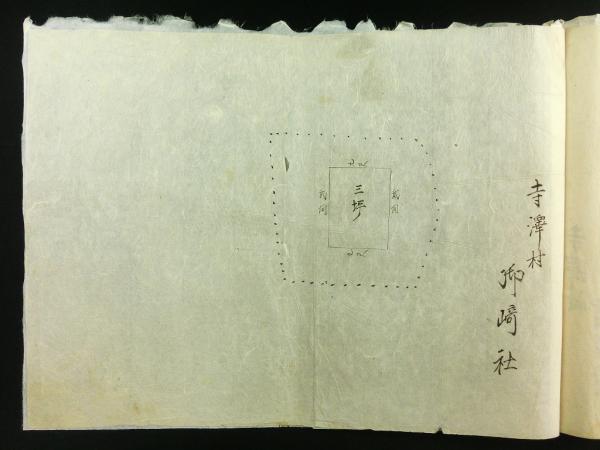 寺澤村
御崎社
三坪
弐間
弐間